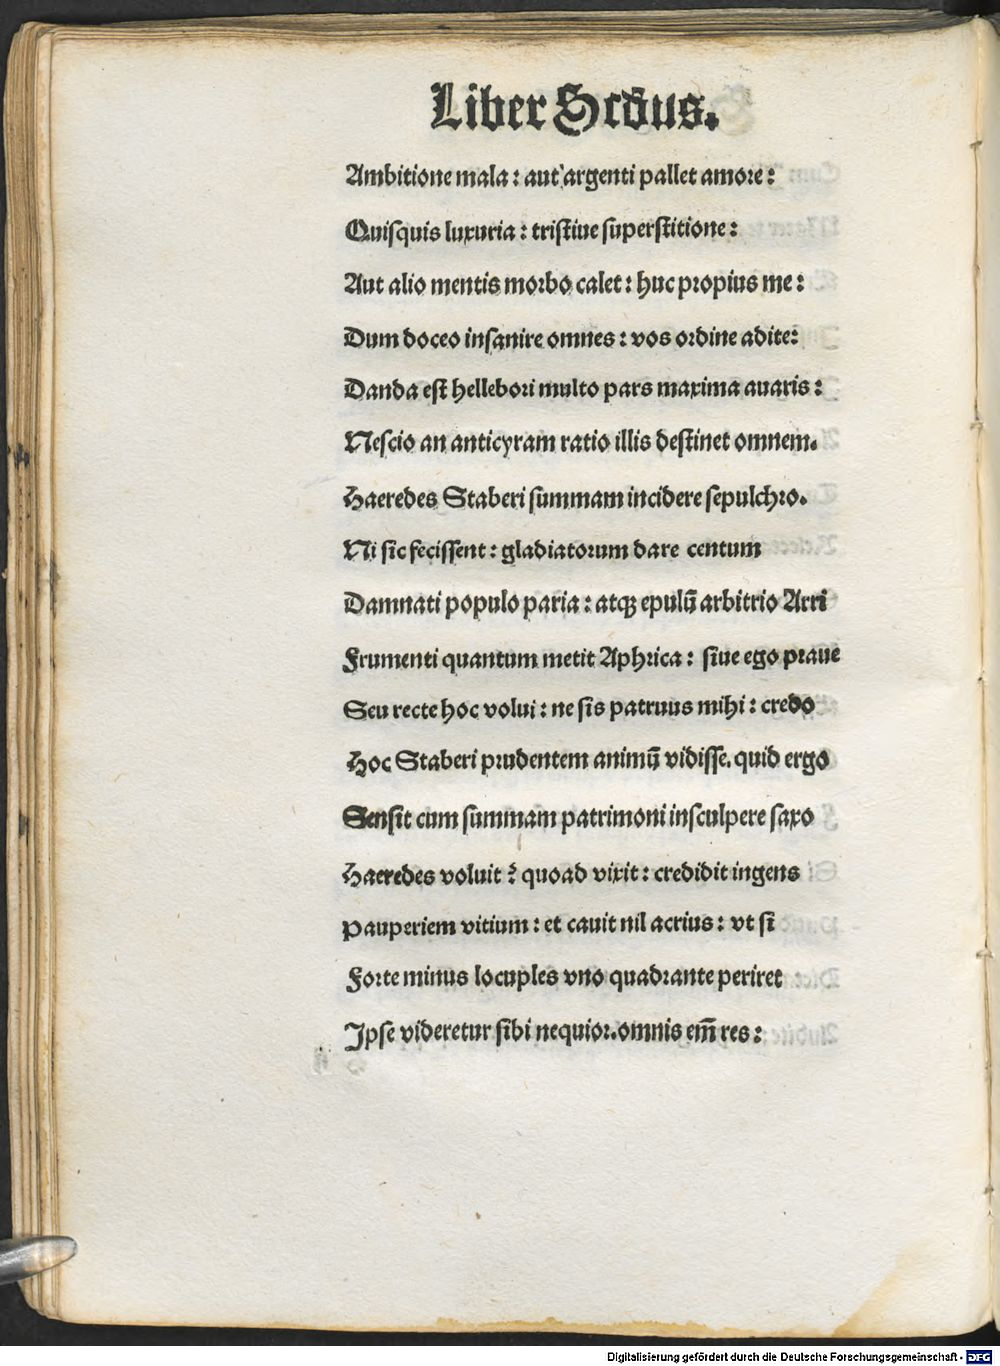 Liber Scd̄us.
Ambitione mala : aut argenti pallet amore :
Quisquis luxuria : tristiue superstitione :
Aut alio mentis morbo calet : huc propius me :
Dum doceo insanire omnes : vos ordine adite:
Danda est hellebori multo pars maxima auaris :
Nescio an anticyram ratio illis destinet omnem.
Haeredes Staberi summam incidere sepulchro.
Ni sic fecissent : gladiatorum dare centum
Damnati populo paria : atqꝫ epulū arbitrio Arri
Frumenti quantum metit Aphrica : siue ego praue
Seu recte hoc volui : ne sis patruus mihi : credo
Hoc Staberi prudentem animū vidisse. quid ergo
Sensit cum summam patrimoni insculpere saxo
Haeredes voluit ? quoad vixit : credidit ingens
Pauperiem vitium : et cauit nil acrius : vt si
Forte minus locuples vno quadrante periret
Ipse videretur sibi nequior. omnis em̄ res :
Digitalisierung gefördert durch die Deutsche Forschungsgemeinschaft - DFG